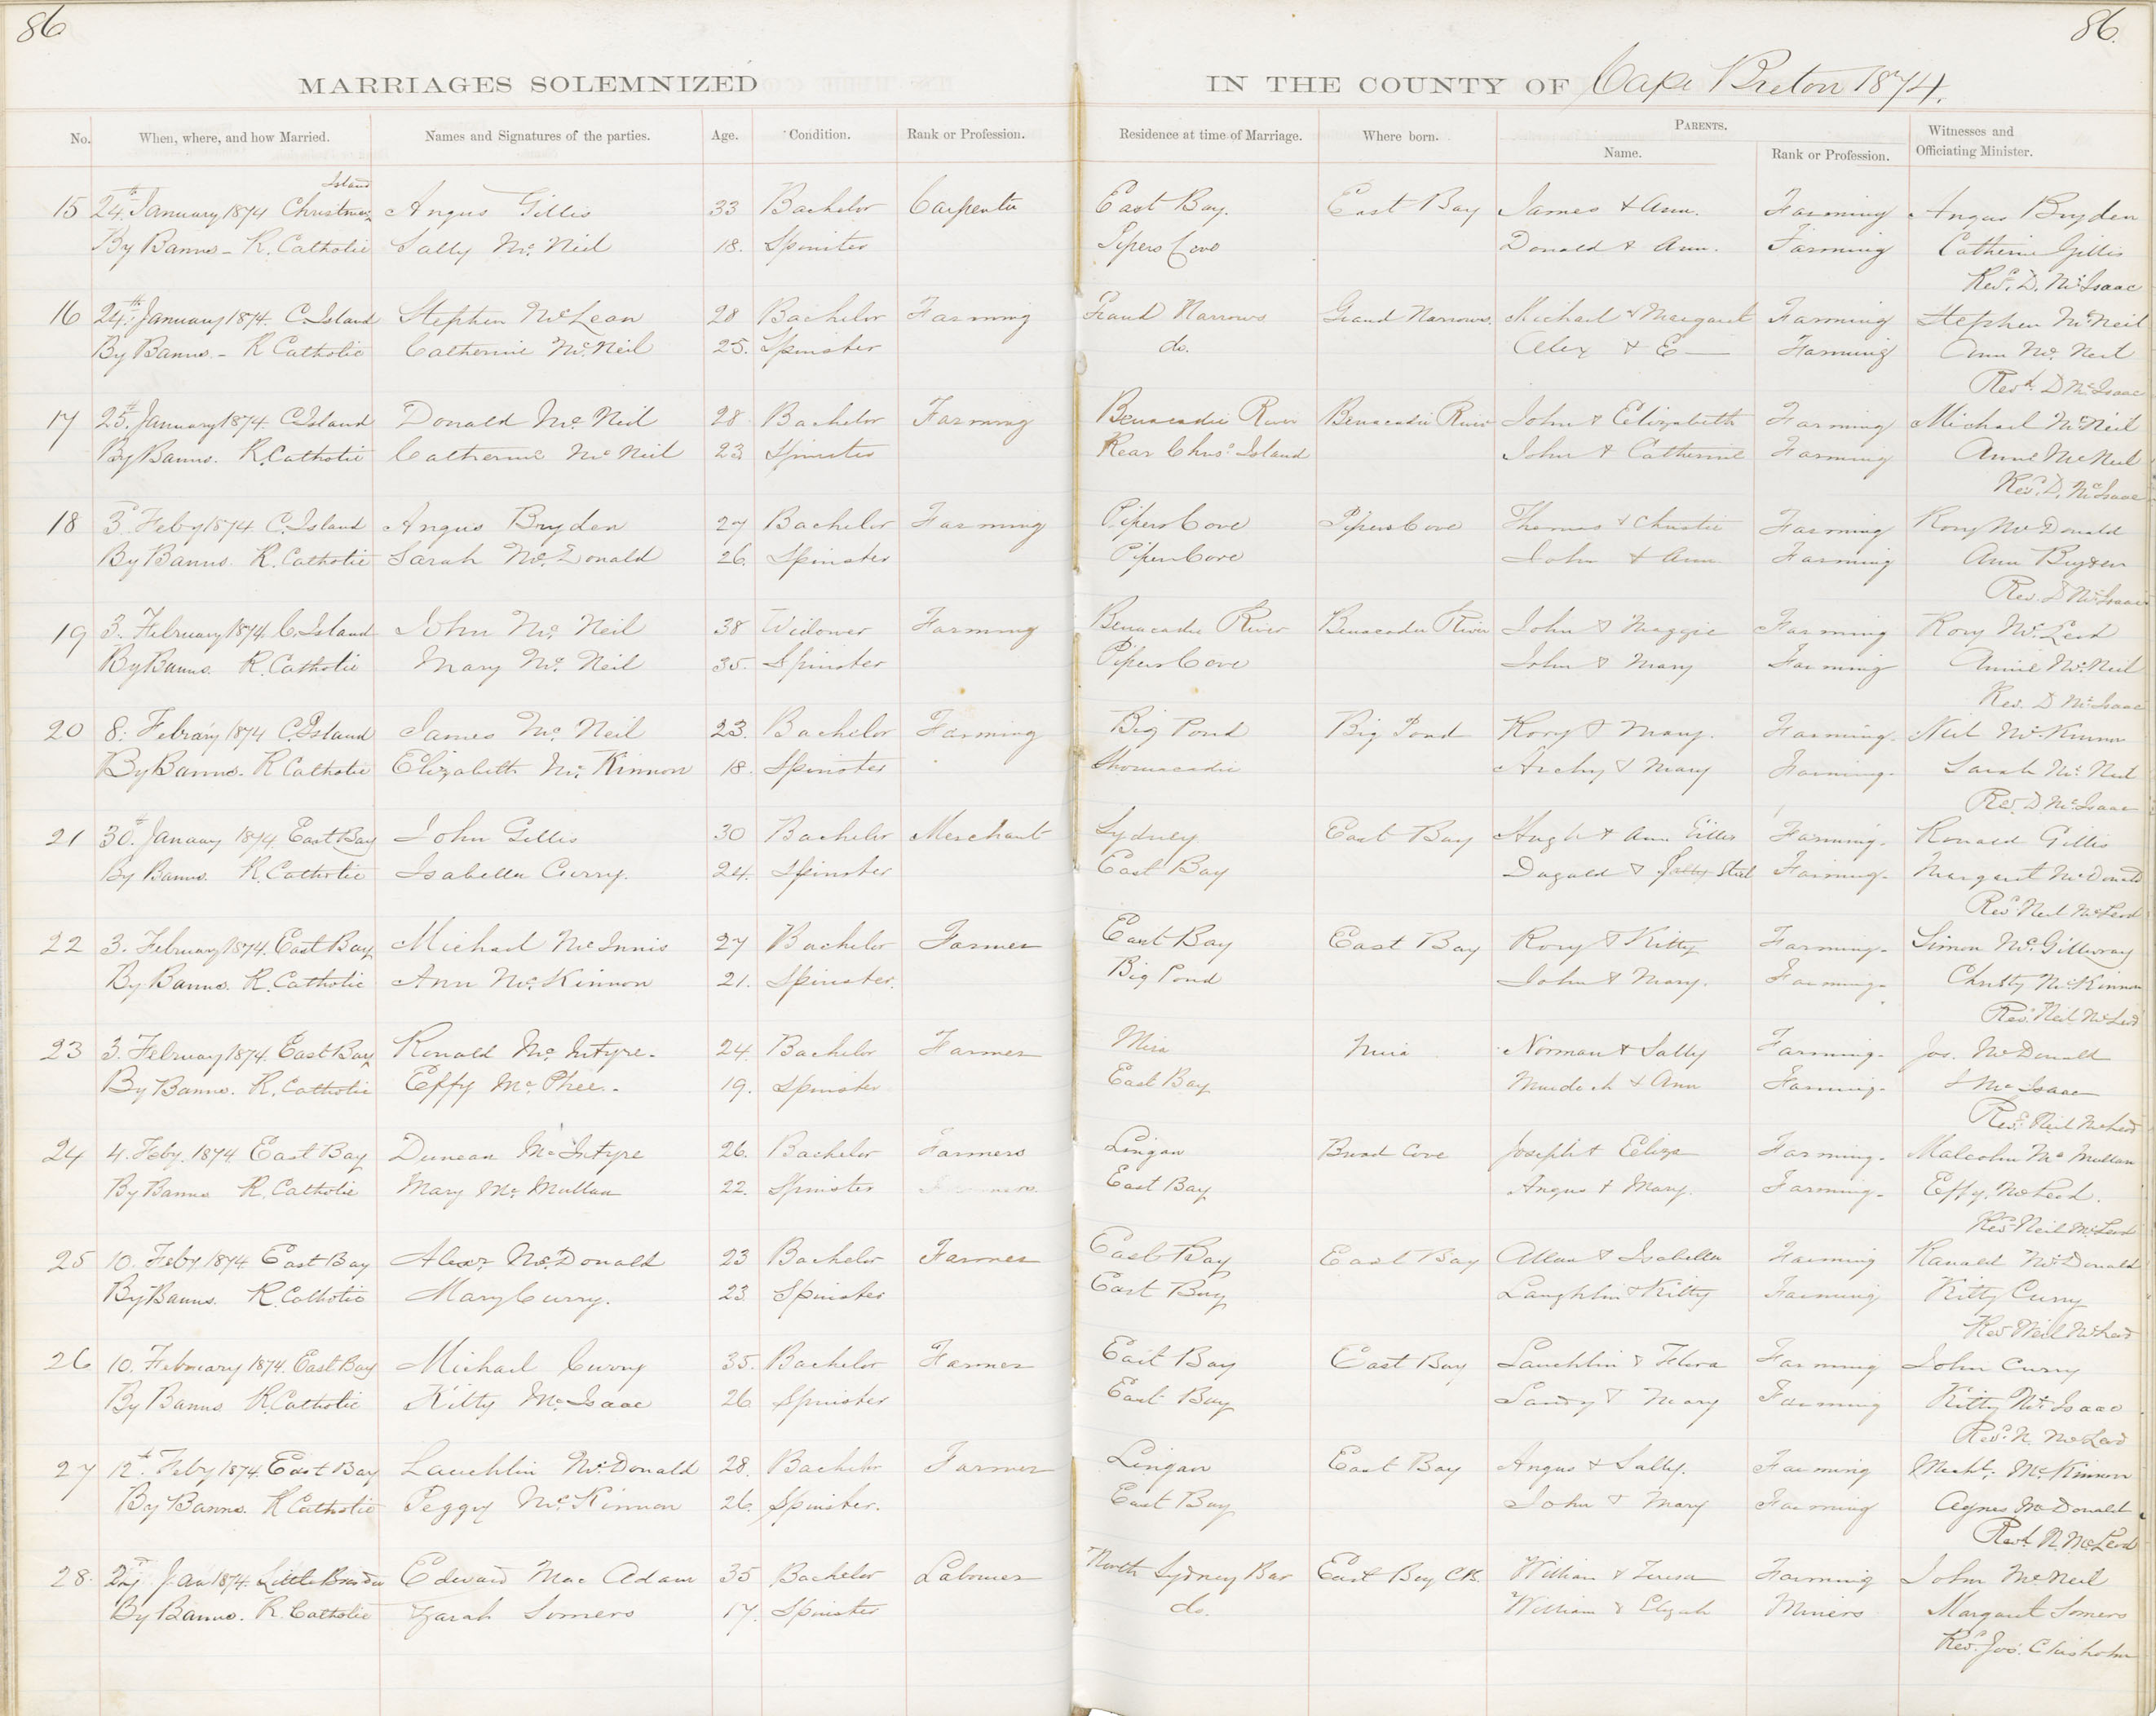 86
86.
MARRIAGES SOLEMNIZED IN THE COUNTY OF Cape Breton 1874.
No. When, where, and how Married. Names and Signatures of the parties. Age. Condition. Rank or Profession. Residence at time of Marriage. Where born. PARENTS. Name. Rank or Profession. Witnesses and Officiating Minister.
Island
15 24th January 1874 Christmas Angus Gillis 33 Bachelor Carpenter East Bay. East Bay James & Ann. Farming Angus Bryden
By Banns - R. Catholic Sally Mc Neil 18. Spinster Pipers Cove Donald & Ann. Farming Catherine Gillis
Revd. D. McIsaac
16 24th January 1874. C. Island Stephen McLean 28 Bachelor Farming Grand Narrows Grand Narrows. Michael & Margaret Farming Stephen McNeil
By Banns. - R Catholic Catherine McNeil 25. Spinster do. Alex & E— Farming Ann Mc Neil
Revd. D McIsaac
17 25th January 1874 C. Island Donald Mc Neil 28 Bachelor Farming Benacadie River Benacadie River John & Elizabeth Farming Michael McNeil
By Banns. R. Catholic Catherine Mc Neil 23 Spinster Rear Chrs. Island John & Catherine Farming Annie McNeil
Revd. D. McIsaac
18 3d Feby 1874. C. Island Angus Bryden 27 Bachelor Farming Pipers Cove Pipers Cove Thomas & Christie Farming Rory McDonald
By Banns. R. Catholic Sarah McDonald 26. Spinster Piper Cove John & Ann Farming Ann Bryden
Rev. D McIsaac
19 3. February 1874. C. Island John Mc Neil 38 Widower Farming Benacadie River Benacadie River John & Maggie Farming Rory McLeod
By Banns. R. Catholic Mary Mc Neil 35. Spinster Pipers Cove John & Mary Farming Annie McNeil
Rev. D McIsaac
20 8. Febrary 1874 C. Island James Mc Neil 23. Bachelor Farming Big Pond Big Pond Rory & Mary. Farming. Neil McKinnon
By Banns. R Catholic Elizabeth McKinnon 18. Spinster Shonacadie Archy & Mary Farming. Sarah McNeil
Rev. D. McIsaac
21 30th January 1874. East Bay John Gillis 30 Bachelor Merchant Sydney East Bay Hugh & Ann Gillis Farming. Ronald Gillis
By Banns. R. Catholic Isabella Curry. 24. Spinster East Bay Dugald & Farming. Margaret McDonald
Revd. Neil McLeod
22 3. February 1874. East Bay Michael McInnis 27 Bachelor Farmer East Bay East Bay Rory & Kitty Farming. Simon McGillivray
By Banns. R. Catholic Ann McKinnon 21. Spinster. Big Pond John & Mary. Farming. Christy McKinnon
Revd. Neil McLeod
23 3. February 1874. East Bay Ronald McIntyre. 24. Bachelor Farmer Mira Mira Norman & Sally Farming. Jos. McDonald
By Banns. R. Catholic Effy McPhee. 19. Spinster East Bay Murdoch & Ann Farming. McIsaac
Revd. Neil McLeod
24 4. Feby. 1874 East Bay Duncan McIntyre 26. Bachelor Farmers Lingan Broad Cove Joseph & Eliza Farming. Malcolm McMullan
By Banns R. Catholic Mary McMullan 22. Spinster East Bay Angus & Mary. Farming. Effy McLeod.
Revd. Neil McLeod
25 10. Feby 1874. East Bay Alexr. McDonald 23 Bachelor Farmer East Bay East Bay Allan & Isabella Farming Ranald McDonald
By Banns. R. Catholic Mary Curry. 23. Spinster East Bay Laughlin & Kitty Farming Kitty Curry
Rev Neil McLeod
26 10. February 1874. East Bay Michael Curry 35. Bachelor Farmer East Bay East Bay Lauchlin & Flora Farming John Curry
By Banns R. Catholic Kitty McIsaac 26 Spinster East Bay Sandy & Mary Farming Kitty McIsaac
Revd. N. McLeod
27 12th Feby 1874. East Bay Lauchlin McDonald 28. Bachelor Farmer Lingan East Bay Angus & Sally. Farming Michl. McKinnon
By Banns. R Catholic Peggy McKinnon 26. Spinster. East Bay John & Mary Farming Agnes McDonald
Revd. N. McLeod
28. Jan 1874. Little Bras dor Edward Mac Adam 35 Bachelor Labourer North Sydney Bar East Bay C.B. William & Teresa Farming John McNeil
By Banns. R. Catholic Sarah Somers 17. Spinster do. William & Elizah Miners Margaret Somers
Revd. Jos. Chisholm